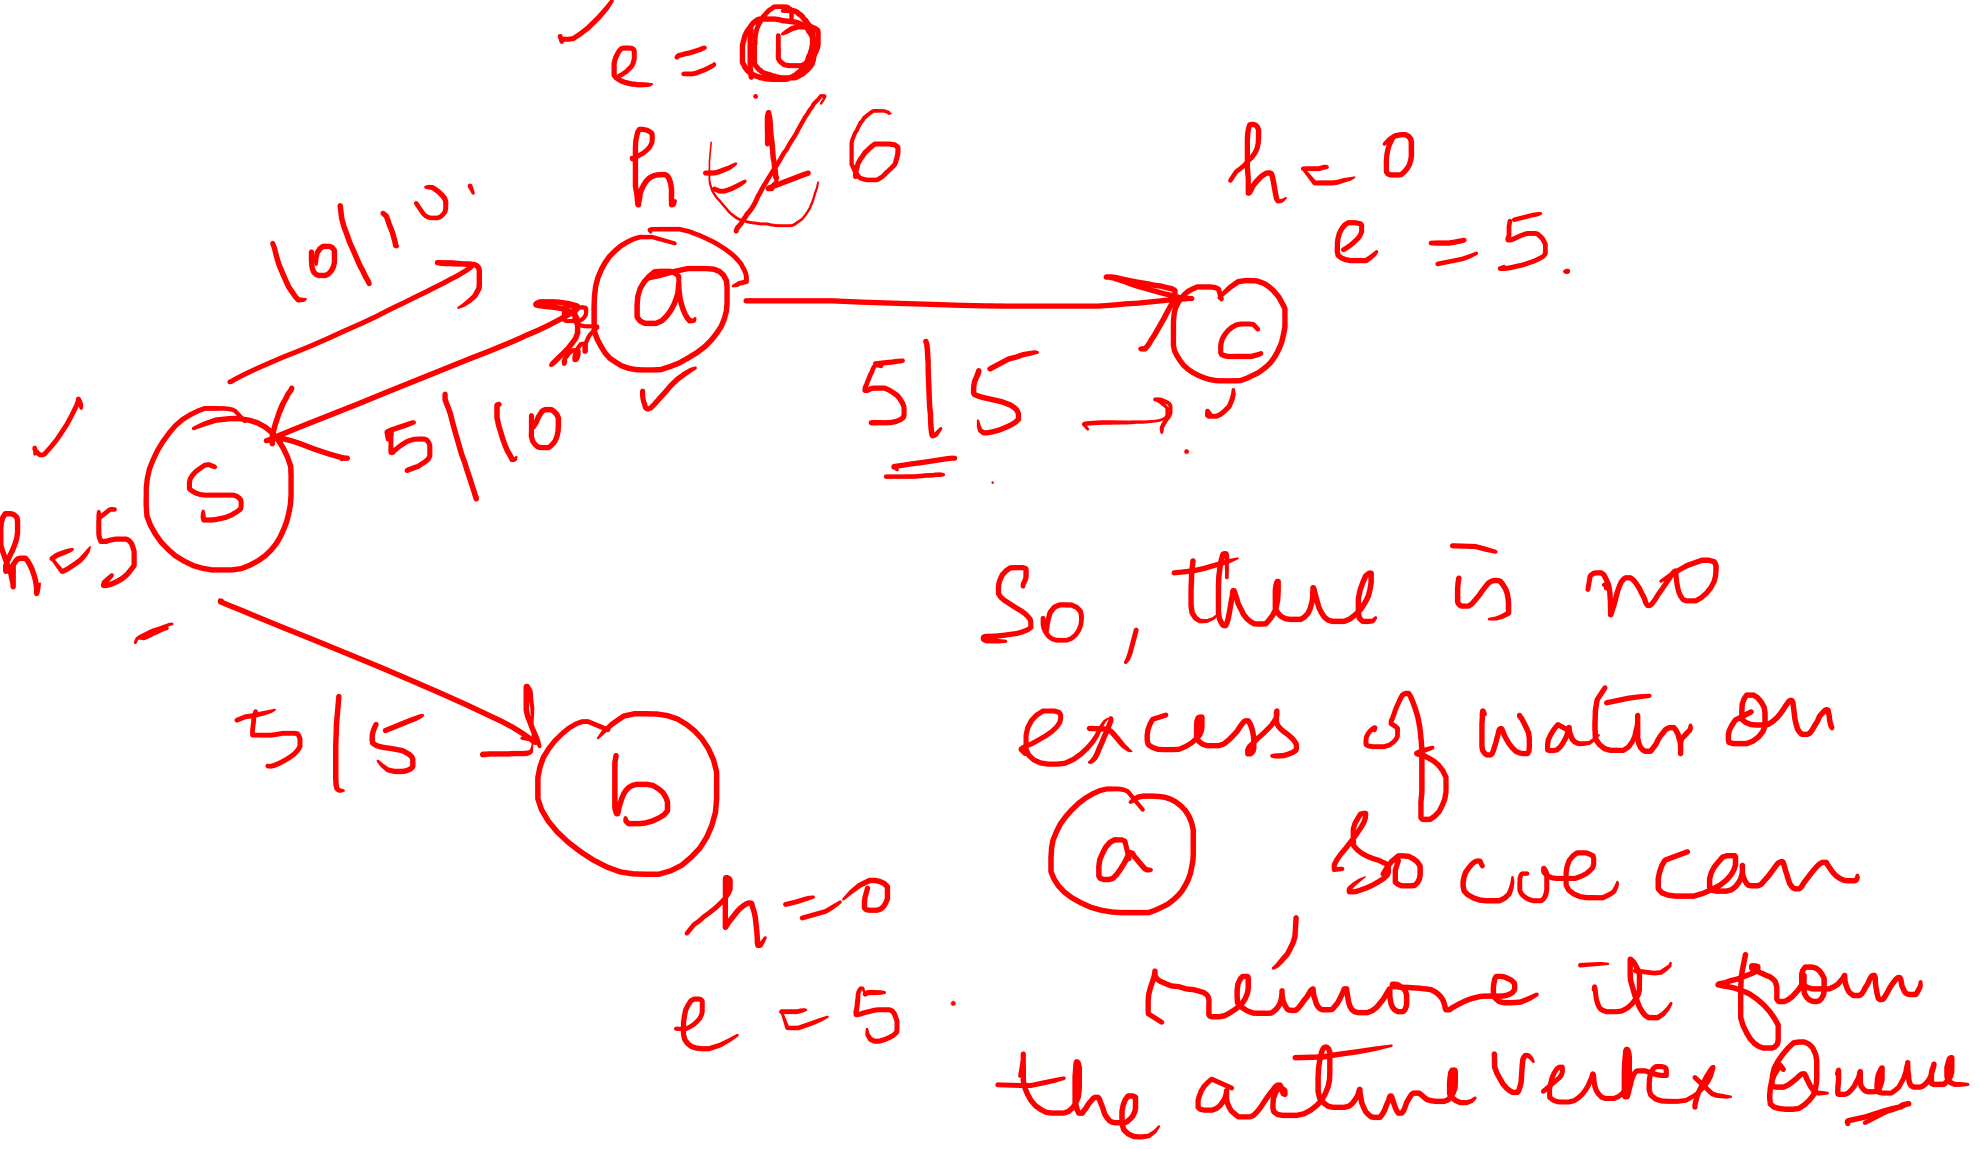 e = 0
h = 1 6
h = 0
e = 5.
10/10.
a
c
5/10
5|5 →
S
h = 5
So, there is no
5/5
excess of water on
b
a so we can
h = 0
, remove it from
e = 5
the active vertex Queue